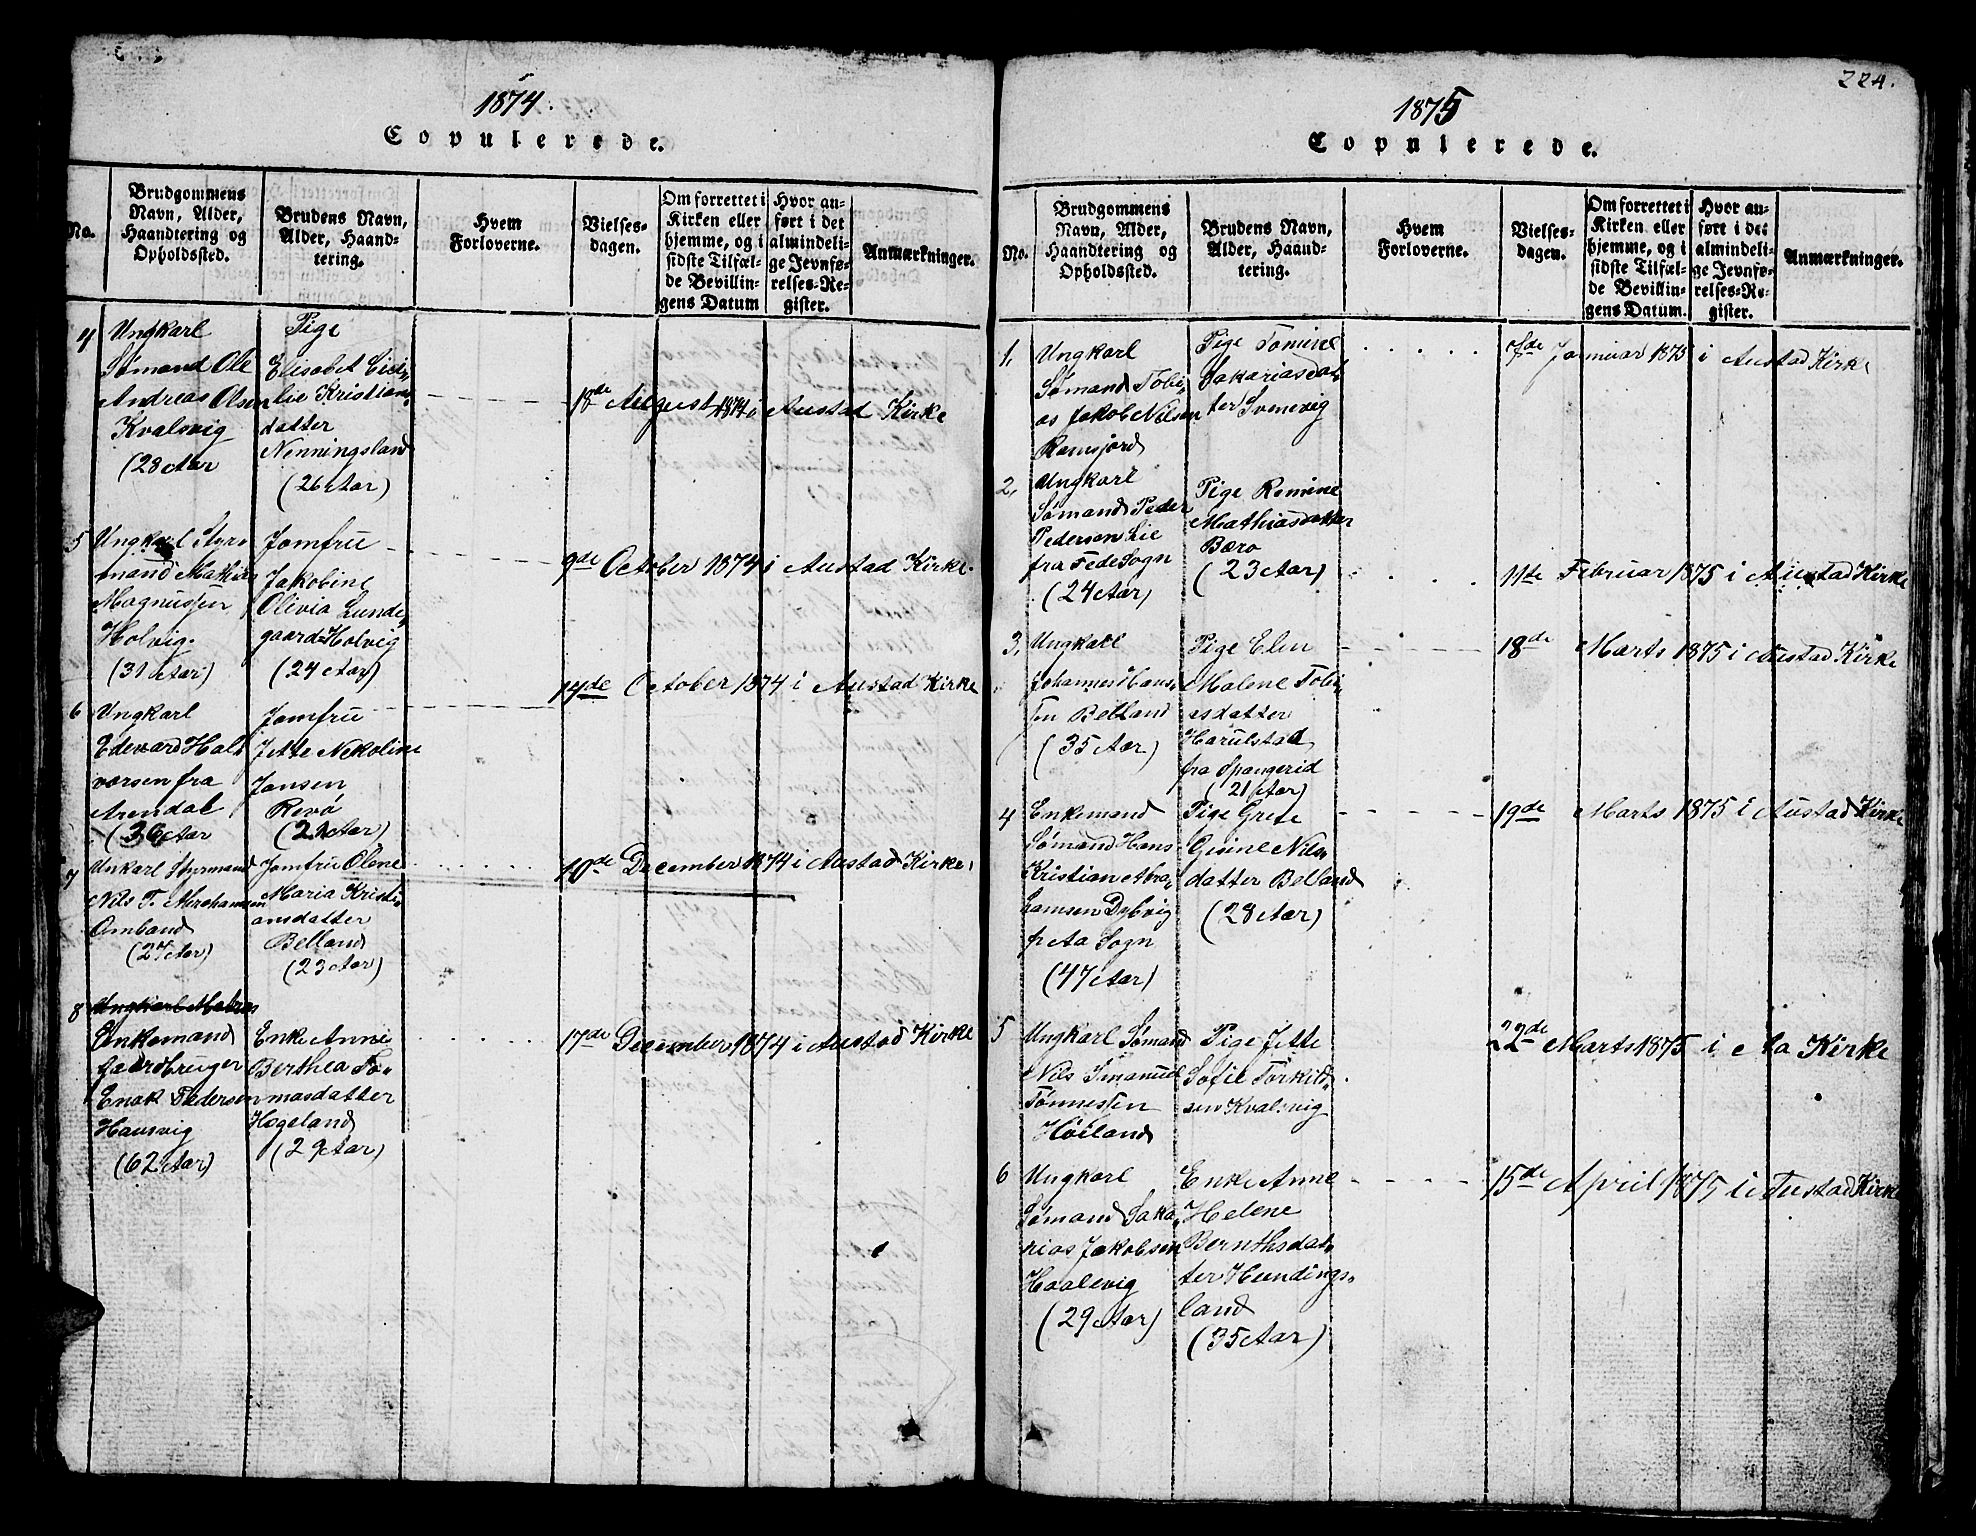 1874.
Copulerede.
No.
Brudgommens
Navn, Alder,
Haandtering og
Opholdssted.
Brudens Navn,
Alder, Haand-
tering.
Hvem
Forloverne.
Vielses-
dagen.
Om forrettet i
Kirken eller
hjemme, og i
sidste Tilfæl-
de Bevillin-
gens Datum
Hvor an-
ført i det
almindeli-
ge Jevnfø-
relses-Re-
gister.
Anmærkninger.
4
Ungkarl
Sømand Ole
Andreas Olsen
Kvalsvig
(28 Aar
Pige
Elisabet
lie Kristian„
datter
Nenningsland
(26 Aar)
18de August 1874 i Austad Kirke
5
Ungkarl Styr„
mand Mathias
Magnussen
Holvig.
(31 Aar)
Jomfru
Jakobine
Olivia Lunde„
gaard Holvig
(24 Aar)
9de October 1874 i Austad Kirke.
6
Ungkarl
Edevard Hal„
vorsen fra
Arendal
(36 Aar
Jomfru
Jette Nikoline
Jansen
Revø
(22 Aar)
14de October 1874 i Austad Kirke
7
Unkarl Styrmand
Nils T. Abrahamsen
Omland
(27 Aar)
Jomfru Olene
Maria Kristi„
ansdatter
Belland
(23 Aar)
10de December 1874 i Austad Kirke
8
Enkemand
Gaardbruger
Enok Pedersen
Hausvig
(62 Aar)
Enke Anne
Berthea To„
masdatter
Høgeland
(29 Aar)
17de December 1874 i Austad Kirke
224.
1875
Copulerede.
No.
Brudgommens
Navn, Alder,
Haandtering og
Opholdssted.
Brudens Navn,
Alder, Haand-
tering.
Hvem
Forloverne.
Vielses-
dagen.
Om forrettet i
Kirken eller
hjemme, og i
sidste Tilfæl-
de Bevillin-
gens Datum.
Hvor an-
ført i det
almindeli-
ge Jevnfø-
relses-Re-
gister.
Anmærkninger.
1,
Ungkarl
Sømand Tobi„
as Jakob Nilsen
Ramsjord
Pige Tomine
Sakariasdat„
ter Svenevig
7de Januar 1875 i Austad Kirke
2,
Ungkarl
Sømand Peder
Pedersen Lie
fra Fede Sogn
(24 Aar)
Pige Romine
Mathiasdatter
Bærø
(23 Aar)
11te Februar 1875 i Austad Kirke
3,
Ungkarl
Johannes Hans„
sen Belland
(35 Aar)
Pige Elen
Malene Tobi„
asdatter
Harulstad
fra Spangerid
(21 Aar)
18de Marts 1875 i Austad Kirke
4
Enkemand
Sømand Hans
Kristian Abra„
hamsen Dybvig
fr Aa Sogn
(47 Aar)
Pige Grete
Gurine Nils„
datter Belland
(28 Aar)
19de Marts 1875 i Austad Kirke
5
Ungkarl Sømand
Nils Emanuel
Tønnessen
Høiland
Pige Jette
Sofie Torkild„
sen Kvalsvig
22de Marts 1875 i Aa Kirke
6
Ungkarl
Sømand Saka„
rias Jakobsen
Haalevig
(29 Aar)
Enke Anne
Helene
Bernthsdat„
ter Hundings„
land
(35 Aar)
15de April 1875 i Austad Kirke